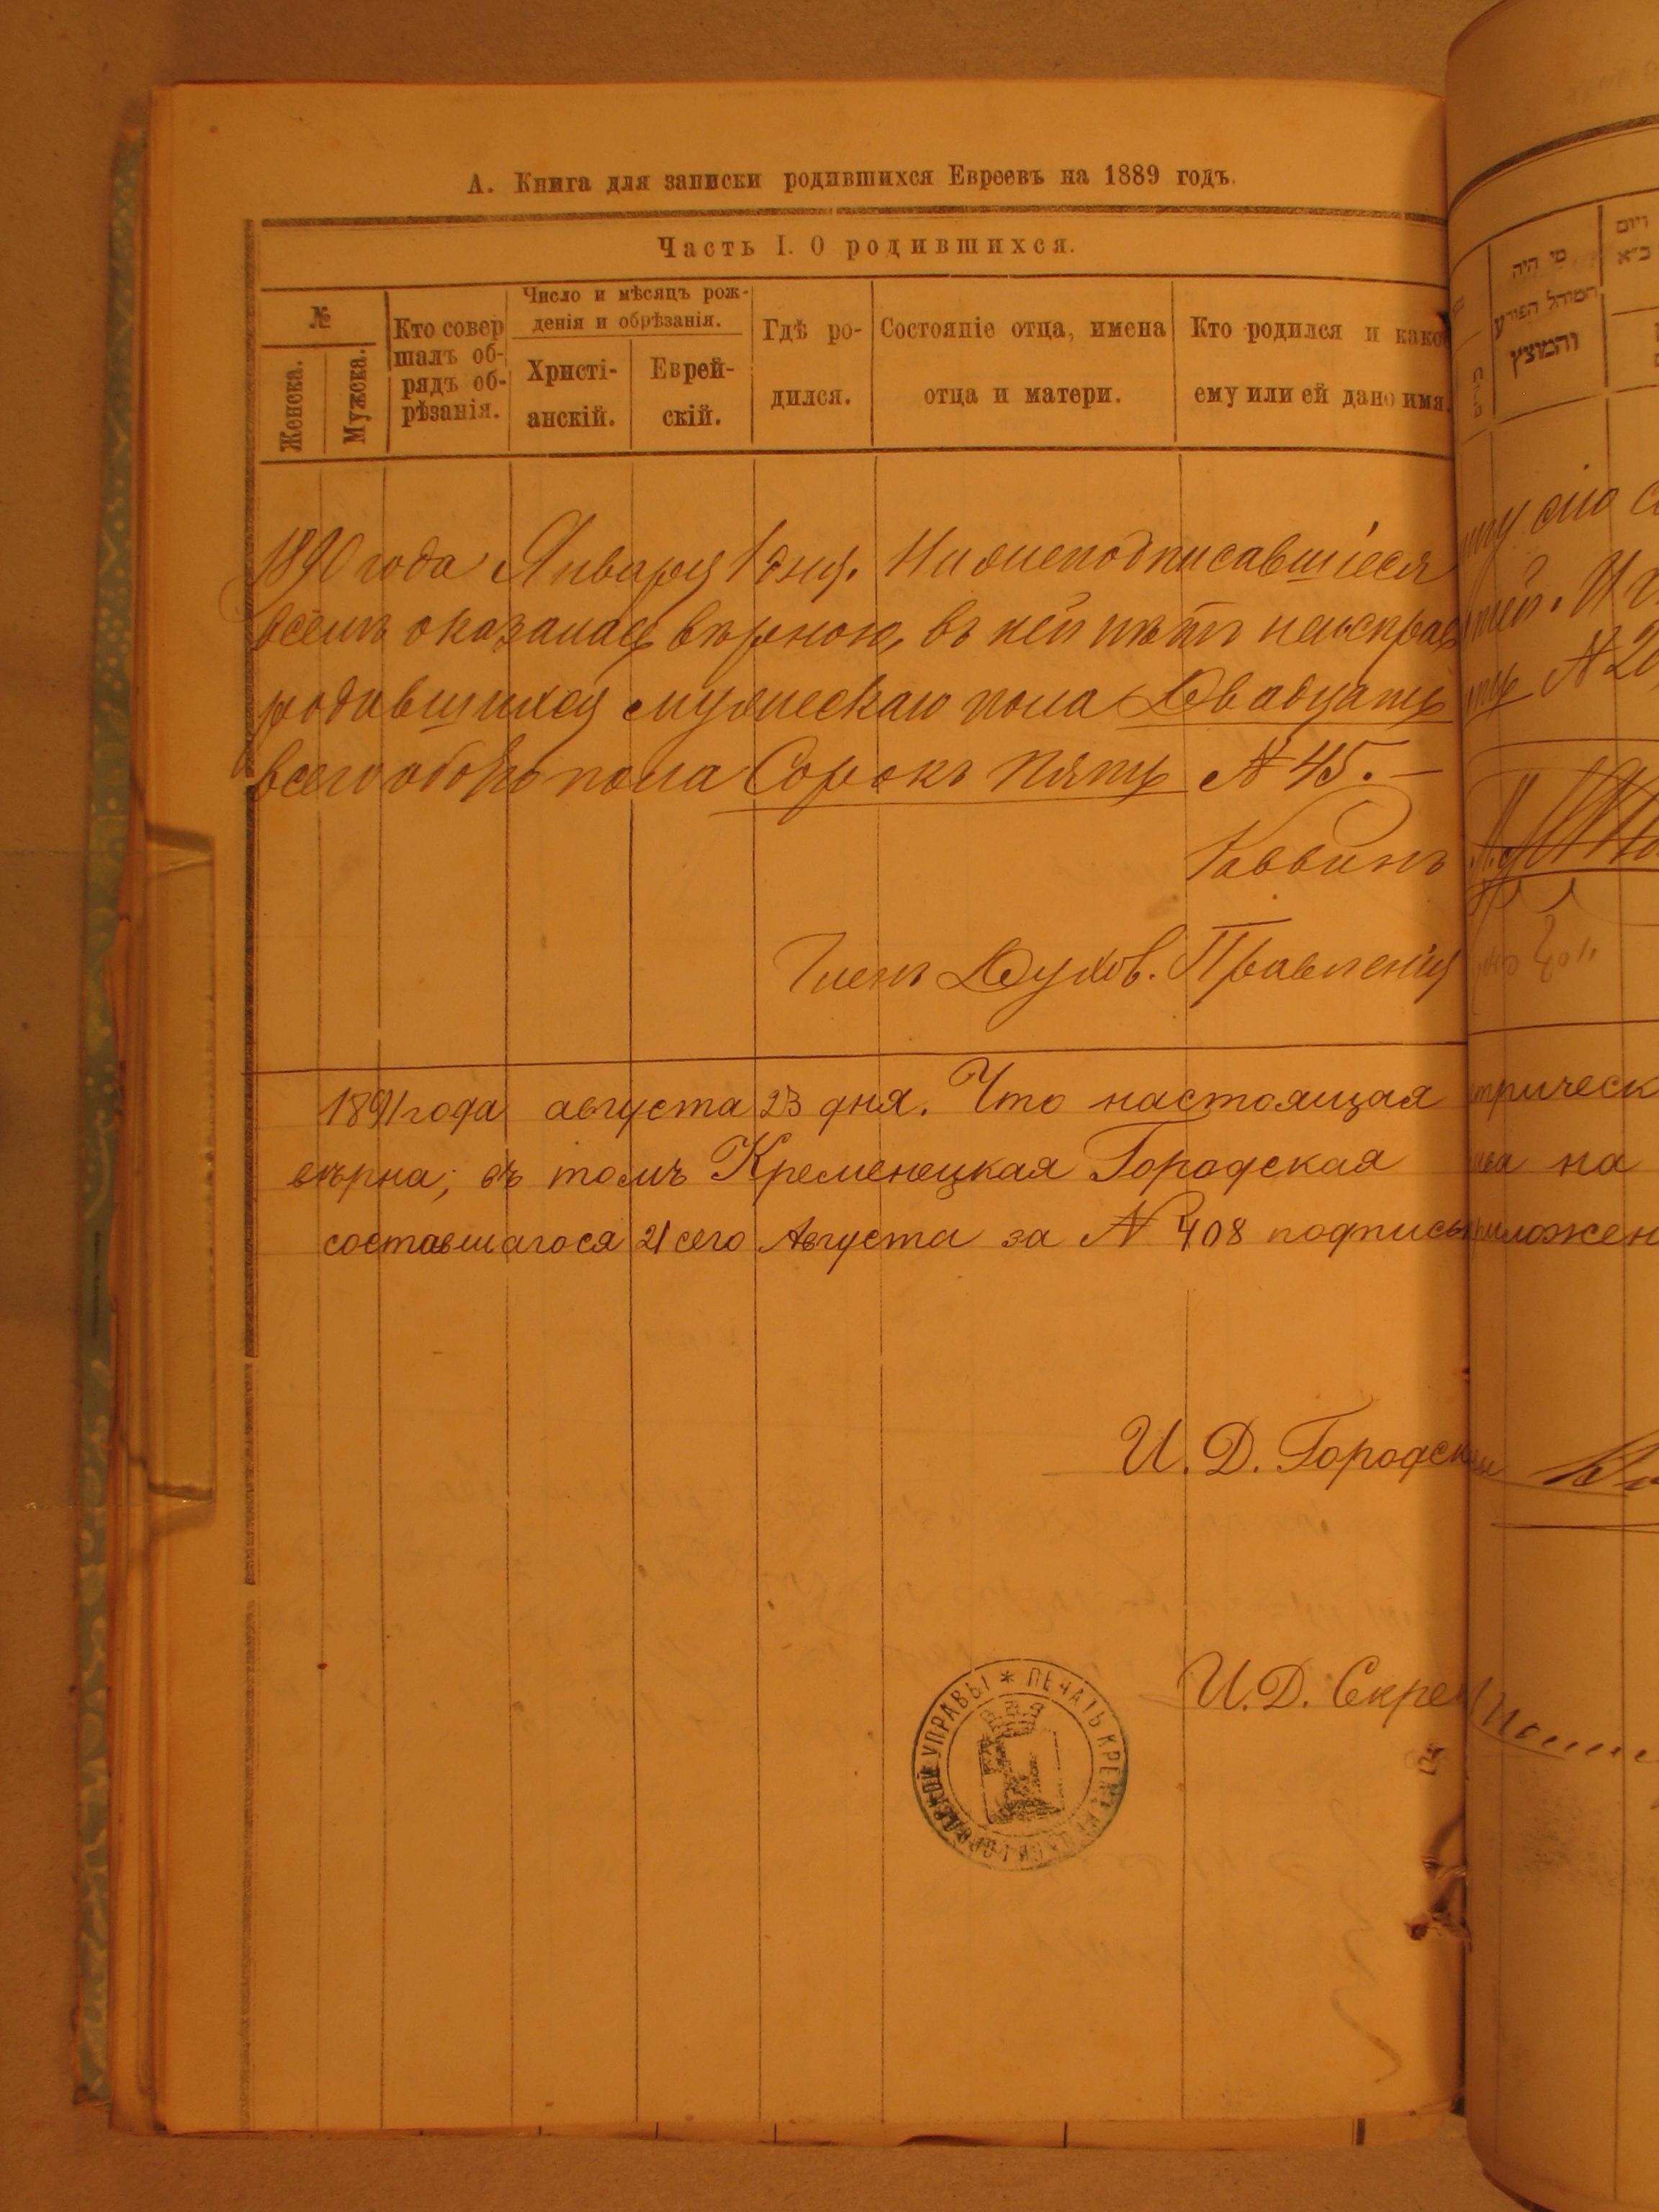 А. Книга для записки родившихся Евреевъ на 1889 годъ.
Часть I. О родившихся.
№
Женска.
Мужска.
Кто совер
шалъ об-
рядъ об-
рѣзанія.
Число и мѣсяцъ рож-
денія и обрѣзанія.
Христі-
анскій.
Еврей-
скій.
Гдѣ ро-
дился.
Состояніе отца, имена
отца и матери.
Кто родился и како
ему или ей дано имя.
מי היה
המוהל הפורע
והמוצץ
1890 года Января 1 дня. Нижеподписавшіеся
всемъ оказалась вѣрною, въ ней нѣтъ неисправ
родившихся мужескаго пола Двадцать № 20
всего обоего пола Сорокъ пять № 45. —
Раввинъ
Членъ Духов. Правленія
1891 года августа 23 дня. Что настоящая трическ
вѣрна; въ томъ Кременецкая Городская на
составшагося 21 сего Августа за № 408 подписью приложен
И. Д. Городск
И. Д. Секре
ПЕЧАТЬ КРЕМЕНЕЦКОЙ ГОРОДСКОЙ УПРАВЫ *